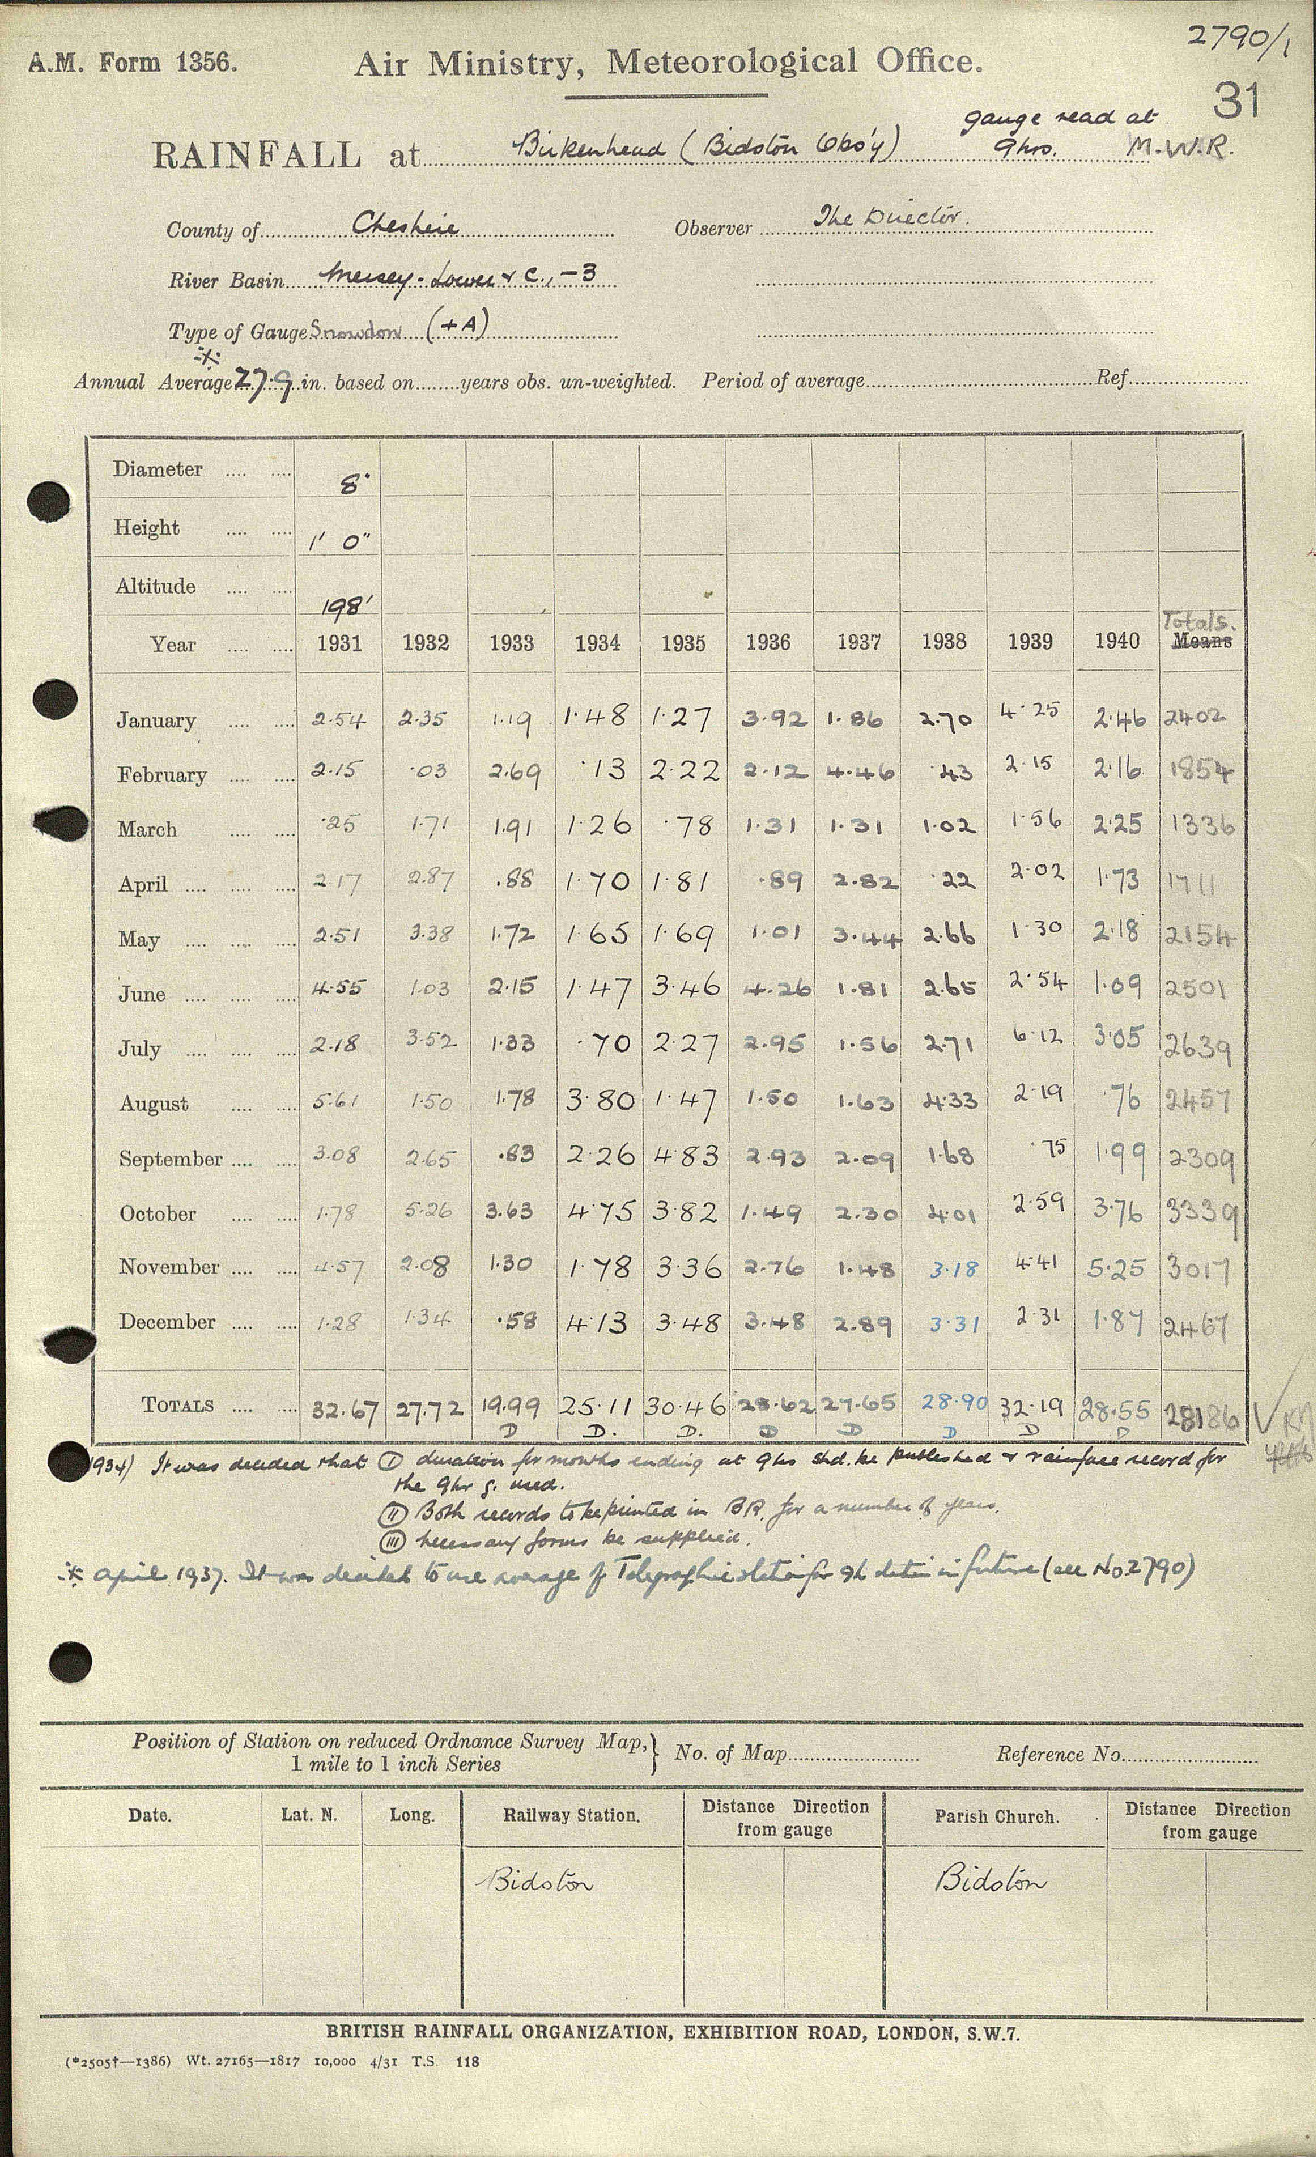 2790/1
A.M. Form 1356. Air Ministry, Meteorological Office.
31
RAINFALL at Birkenhead (Bidston Obs'y) gauge read at 9hrs. M.W.R.
County of Cheshire Observer The Director.
River Basin Mersey-Lower & C., -3
Type of Gauge Snowdon (+A)
Annual Average 27.9 in. based on years obs. un-weighted. Period of average Ref.
Diameter 8"
Height 1' 0"
Altitude 198'
Totals.
Year 1931 1932 1933 1934 1935 1936 1937 1938 1939 1940 Means
January 2.54 2.35 1.19 1.48 1.27 3.92 1.86 2.70 4.25 2.46 2402
February 2.15 .03 2.69 .13 2.22 2.12 4.46 .43 2.15 2.16 1854
March .25 1.71 1.91 1.26 .78 1.31 1.31 1.02 1.56 2.25 1336
April 2.17 2.87 .88 1.70 1.81 .89 2.82 .22 2.02 1.73 1711
May 2.51 3.38 1.72 1.65 1.69 1.01 3.44 2.66 1.30 2.18 2154
June 4.55 1.03 2.15 1.47 3.46 4.26 1.81 2.65 2.54 1.09 2501
July 2.18 3.52 1.33 .70 2.27 2.95 1.56 2.71 6.12 3.05 2639
August 5.61 1.50 1.78 3.80 1.47 1.50 1.63 4.33 2.19 .76 2457
September 3.08 2.65 .83 2.26 4.83 2.93 2.09 1.68 .75 1.99 2309
October 1.78 5.26 3.63 4.75 3.82 1.49 2.30 4.01 2.59 3.76 3339
November 4.57 2.08 1.30 1.78 3.36 2.76 1.48 3.18 4.41 5.25 3017
December 1.28 1.34 .58 4.13 3.48 3.48 2.89 3.31 2.31 1.87 2467
TOTALS 32.67 27.72 19.99 25.11 30.46 28.62 27.65 28.90 32.19 28.55 28186
D D. D. D D D D D
1934) It was decided that (I) duration for months ending at 9hrs shd. be published & rainfall record for
the 9hr g. used.
(II) Both records to be printed in B.R. for a number of years.
(III) necessary forms be supplied.
April 1937. It was decided to use average of Telegraphic station for 9h data in future (see No. 2790)
Position of Station on reduced Ordnance Survey Map, 1 mile to 1 inch Series } No. of Map Reference No.
Date. Lat. N. Long. Railway Station. Distance Direction from gauge Parish Church. Distance Direction from gauge
Bidston Bidston
BRITISH RAINFALL ORGANIZATION, EXHIBITION ROAD, LONDON, S.W.7.
(*2505†—1386) Wt. 27165—1817 10,000 4/31 T.S. 118